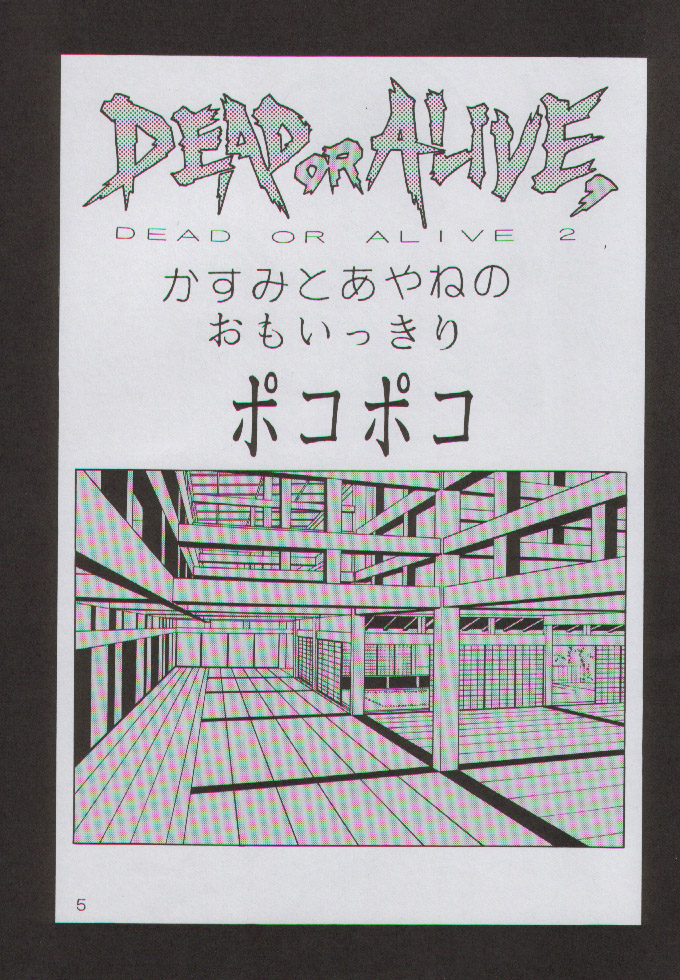 DEAD OR ALIVE,
DEAD OR ALIVE 2,
かすみとあやねの
おもいっきり
ポコポコ
5